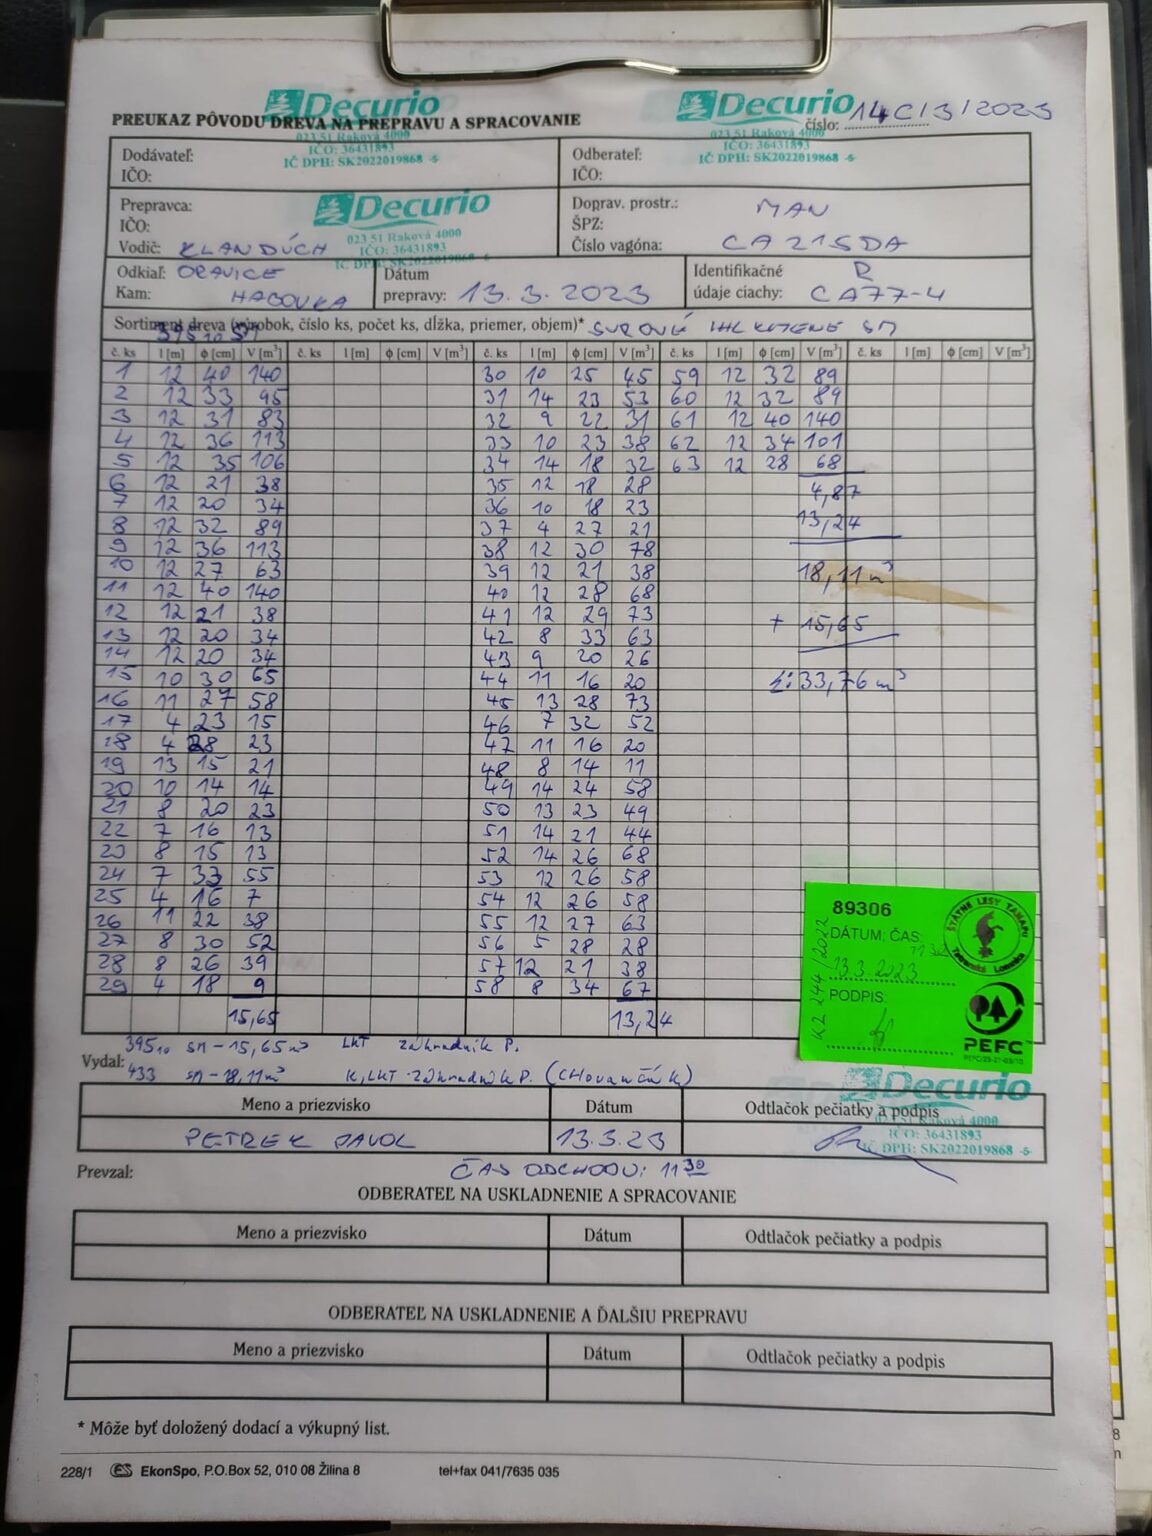 Decurio
Decurio
PREUKAZ PÔVODU DREVA NA PREPRAVU A SPRACOVANIE
číslo: 14C/3/2023
023 51 Raková 4000
IČO: 36431893
IČ DPH: SK2022019868 -5-
023 51 Raková 4000
IČO: 36431893
IČ DPH: SK2022019868 -5-
Dodávateľ:
IČO:
Odberateľ:
IČO:
Prepravca:
IČO:
Vodič: KLANDÚCH
Decurio
023 51 Raková 4000
IČO: 36431893
IČ DPH: SK2022019868 -5-
Doprav. prostr.: MAN
ŠPZ:
Číslo vagóna: CA215DA
Odkiaľ: ORAVICE
Kam: HAGOVKA
Dátum
prepravy: 13.3.2023
Identifikačné R
údaje ciachy: CA77-4
Sortiment dreva (výrobok, číslo ks, počet ks, dĺžka, priemer, objem)* SUROVÉ IHL KMENE SM
395 10 SM
č. ks l [m] ϕ [cm] V [m³] č. ks l [m] ϕ [cm] V [m³] č. ks l [m] ϕ [cm] V [m³] č. ks l [m] ϕ [cm] V [m³] č. ks l [m] ϕ [cm] V [m³]
1 12 40 140 30 10 25 45 59 12 32 89
2 12 33 95 31 14 23 53 60 12 32 89
3 12 31 83 32 9 22 31 61 12 40 140
4 12 36 113 33 10 23 38 62 12 34 101
5 12 35 106 34 14 18 32 63 12 28 68
6 12 21 38 35 12 18 28 4,87
7 12 20 34 36 10 18 23
8 12 32 89 37 4 27 21 13,24
9 12 36 113 38 12 30 78
10 12 27 63 39 12 21 38 18,11 m³
11 12 40 140 40 12 28 68
12 12 21 38 41 12 29 73 + 15,65
13 12 20 34 42 8 33 63
14 12 20 34 43 9 20 26
15 10 30 65 44 11 16 20 Σ: 33,76 m³
16 11 27 58 45 13 28 73
17 4 23 15 46 7 32 52
18 4 28 23 47 11 16 20
19 13 15 21 48 8 14 11
20 10 14 14 49 14 24 58
21 8 20 23 50 13 23 49
22 7 16 13 51 14 21 44
23 8 15 13 52 14 26 68
24 7 33 55 53 12 26 58
25 4 16 7 54 12 26 58
26 11 22 38 55 12 27 63
27 8 30 52 56 5 28 28
28 8 26 39 57 12 21 38
29 4 18 9 58 8 34 67
15,65 13,24
89306
DÁTUM, ČAS:
13.3.2023
PODPIS:
KL 244/2022
ŠTÁTNE LESY TANAPU
Tatranská Lomnica
PEFC
39510 SM - 15,65 m³ LKT Záhradník P.
Vydal: 433 SM - 18,11 m³ K, LKT - Záhradník P. (CHovančík)
Decurio
023 51 Raková 4000
IČO: 36431893
IČ DPH: SK2022019868 -5-
Meno a priezvisko Dátum Odtlačok pečiatky a podpis
PETREK PAVOL 13.3.23
Prevzal: ČAS ODCHODU: 11 30
ODBERATEĽ NA USKLADNENIE A SPRACOVANIE
Meno a priezvisko Dátum Odtlačok pečiatky a podpis
ODBERATEĽ NA USKLADNENIE A ĎALŠIU PREPRAVU
Meno a priezvisko Dátum Odtlačok pečiatky a podpis
* Môže byť doložený dodací a výkupný list.
228/1 ES EkonSpo, P.O.Box 52, 010 08 Žilina 8 tel+fax 041/7635 035